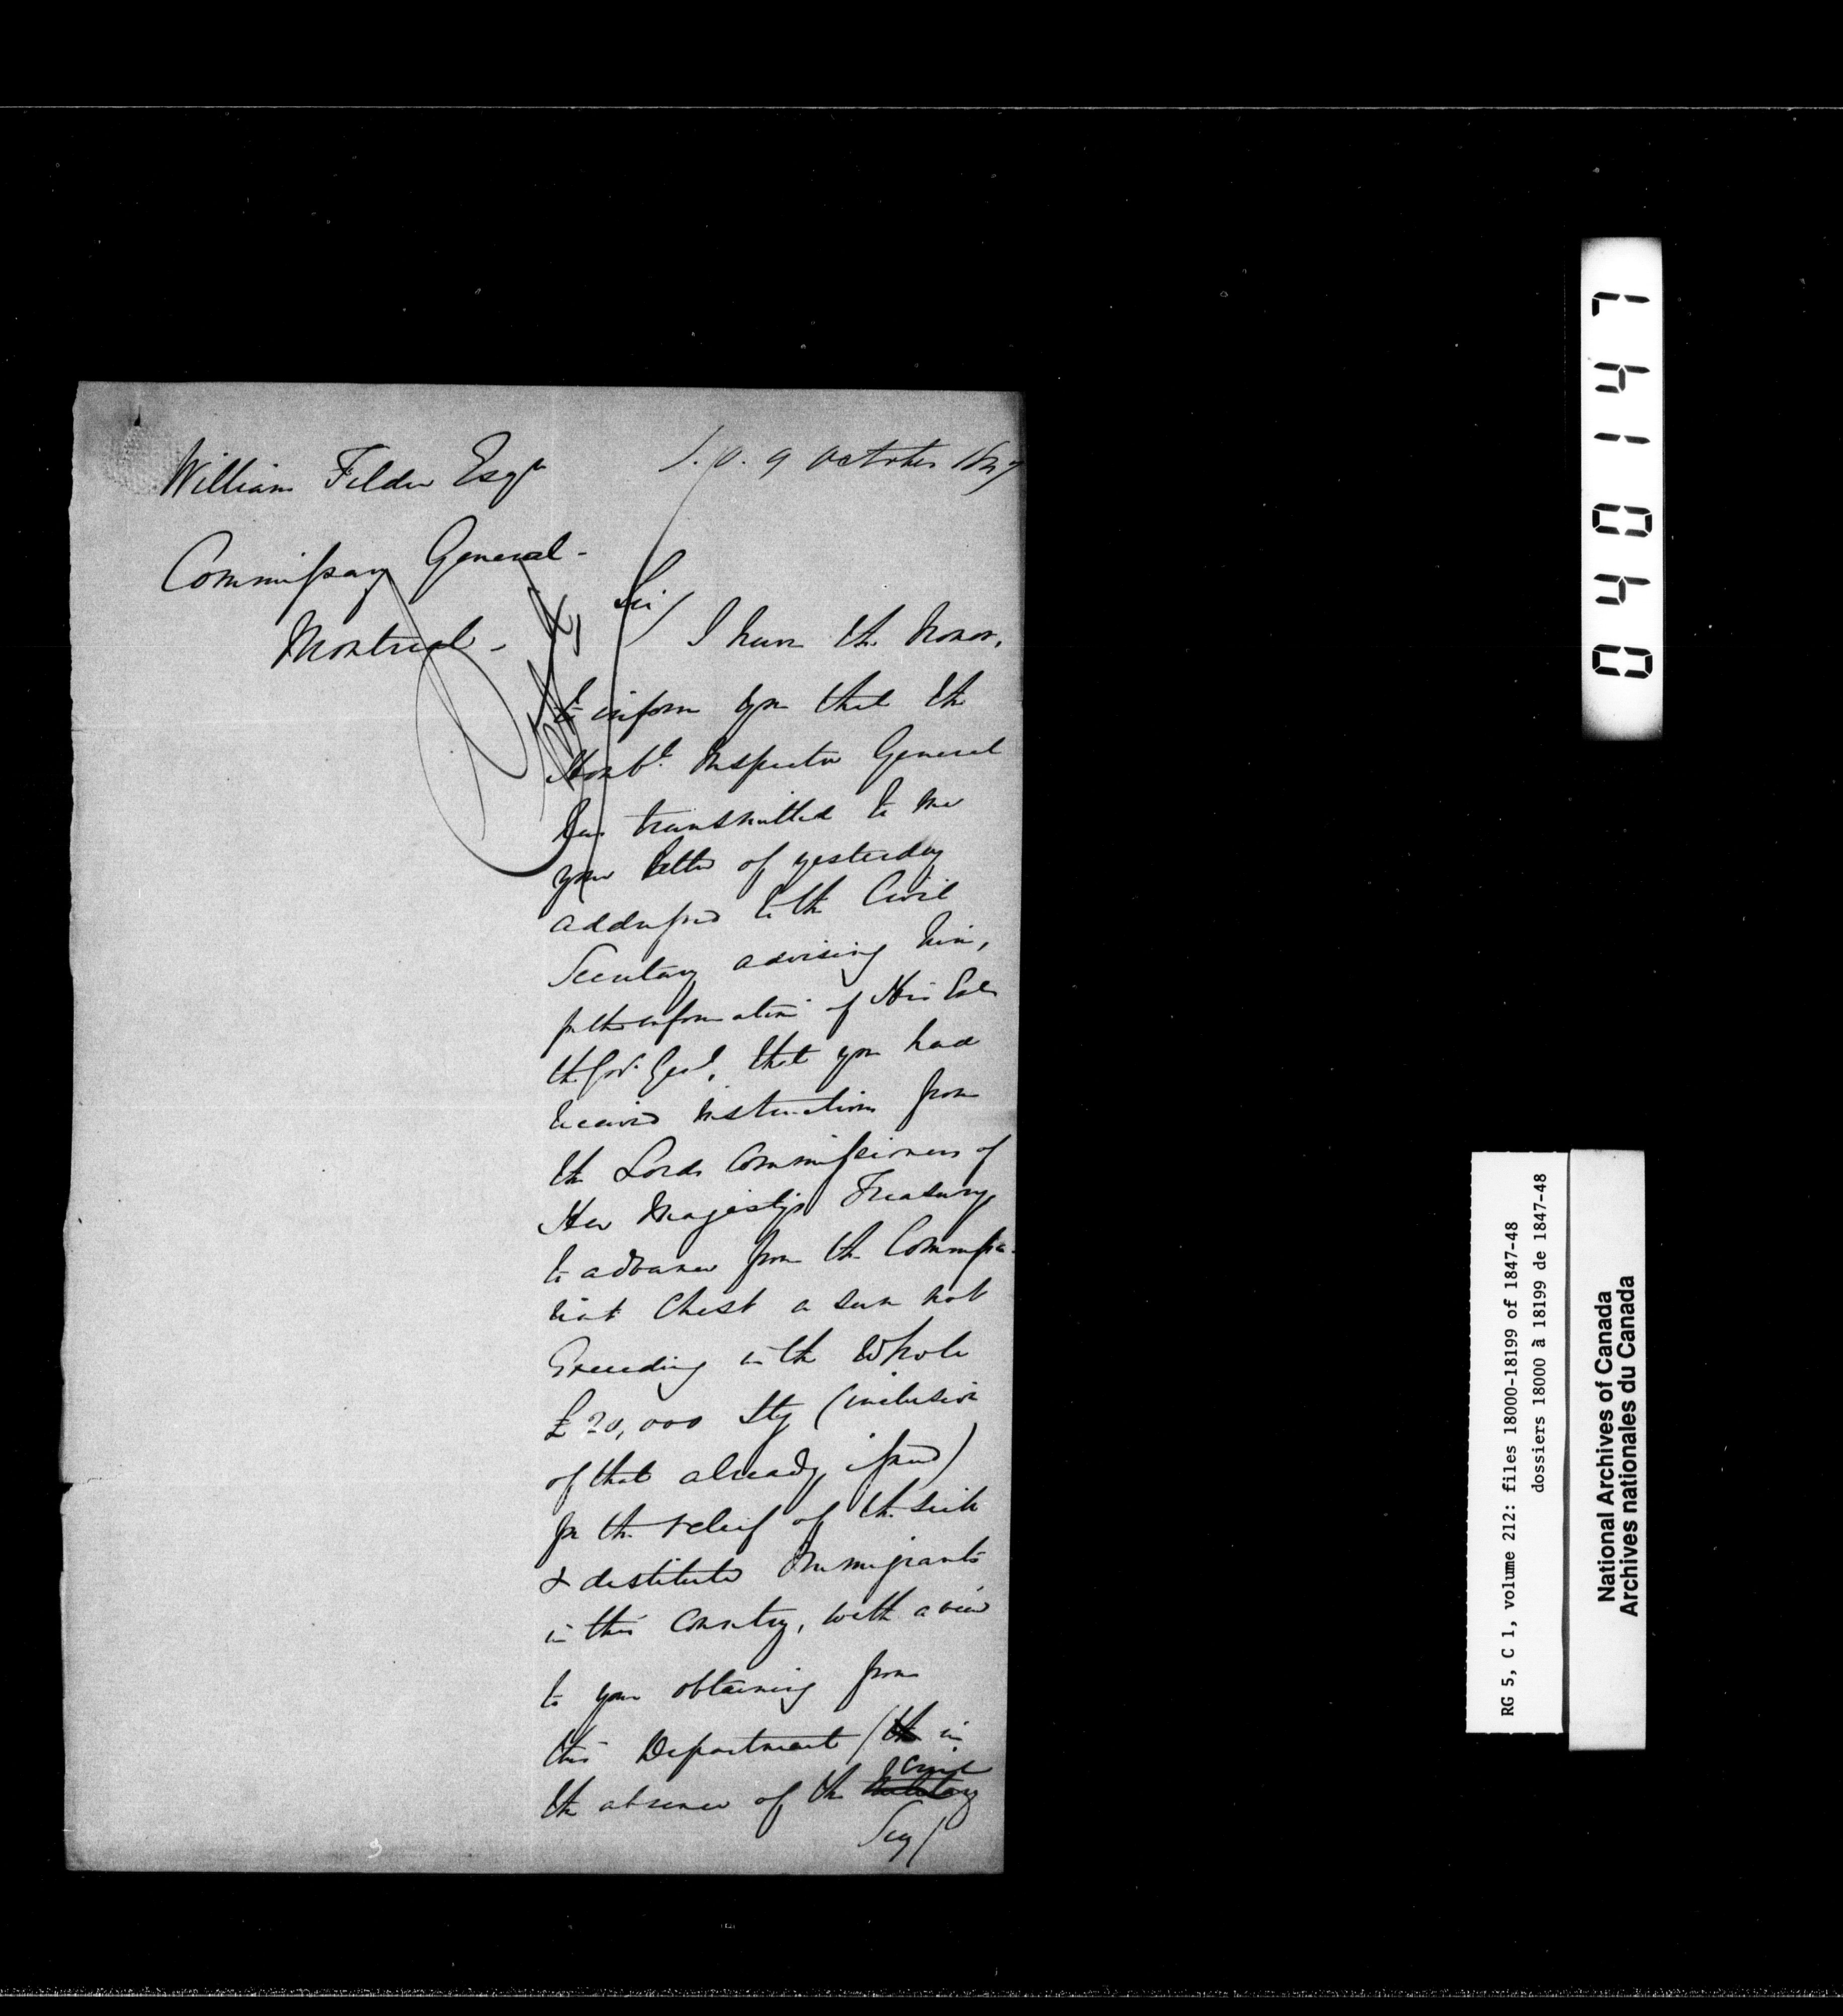 S.O. 9 October 1847
William Filder Esqr
Commissary General -
Montreal -
Sir
I have the honor,
to inform you that the
Honble. Inspector General
has transmitted to me
your letter of yesterday
addressed to the Civil
Secretary advising him,
for the information of His Exl
the Gov. Genl, that you had
received instructions from
the Lords Commissioners of
Her Majesty's Treasury
to advance from the Commissa-
riat Chest a sum not
Exceeding in the Whole
£20,000 Stg (inclusive
of that already issued)
for the relief of the sick
& destitute Immigrants
in this Country, with a view
to your obtaining from
this Department (the in
the absence of the Civil
Secy)
0 4 0 1 1 4 7
RG 5, C 1, volume 212: files 18000-18199 of 1847-48
dossiers 18000 à 18199 de 1847-48
National Archives of Canada
Archives nationales du Canada